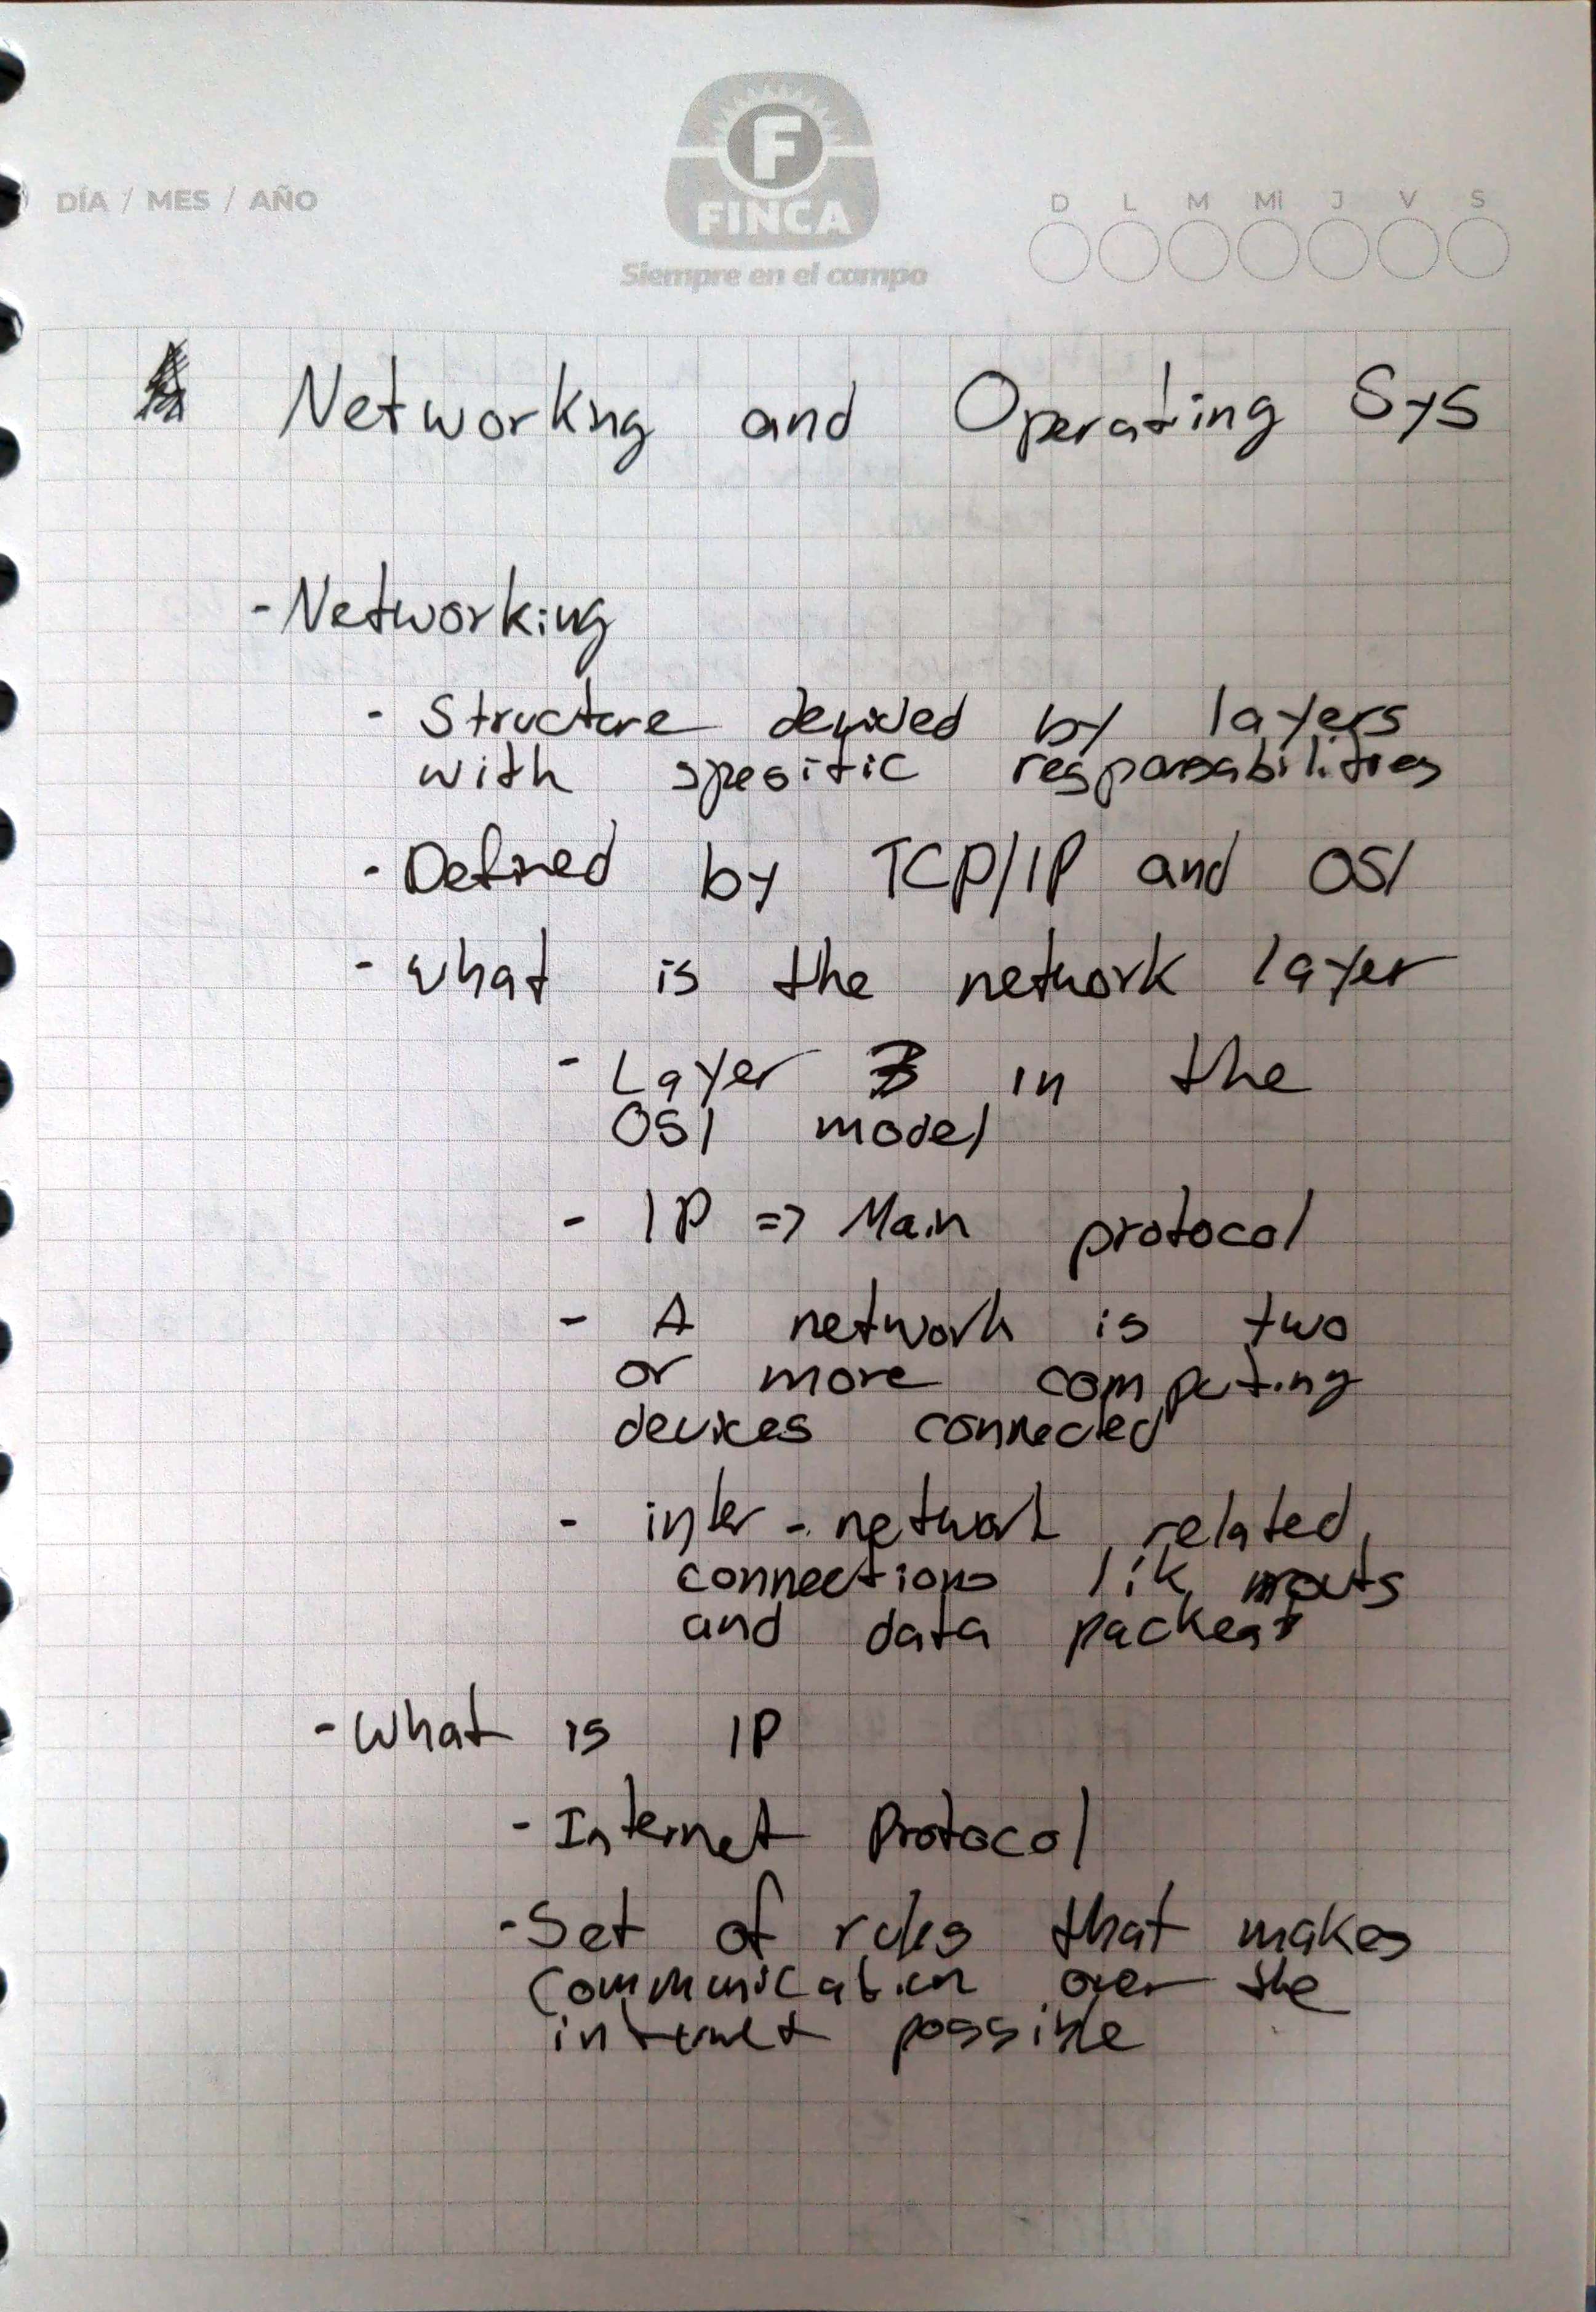 DÍA / MES / AÑO
F
FINCA
Siempre en el campo
D L M Mi J V S
Networkng and Operating Sys
- Networking
- Structure devided by layers
with spesific responsabilities
- Defined by TCP/IP and OSI
- What is the network layer
- Layer 3 in the
OSI model
- IP => Main protocol
- A network is two
or more computing
devices connected
- inter-network related
connections lik routs
and data packeat
- What is IP
- Internet Protocol
- Set of rules that makes
communication over the
internet possible